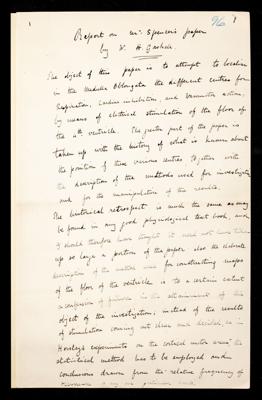 96
1
Report on Mr Spencer's paper
by W. H. Gaskell.
The object of this paper is to attempt to localise
in the Medulla Oblongata the different centres for
Respiration, Cardiac inhibition, and Vasomotor actions,
by means of electrical stimulation of the floor of
the 4th ventricle. The greater part of the paper is
taken up with the history of what is known about
the position of these various centres together with
the description of the methods used for investigation
and for the manipulation of the results.
The historical retrospect is much the same as may
be found in any good physiological text book, and
I should therefore have thought it need not have taken
up so large a portion of the paper. also the elaborate
description of the method used for constructing maps
of the floor of the ventricle is to a certain extent
a confession of failure in the attainment of the
object of the investigation; instead of the results
of stimulation coming out clear and decided, as in
Horsley's experiments on the cortical motor areas the
statistical method has to be employed and
conclusions drawn from the relative frequency of